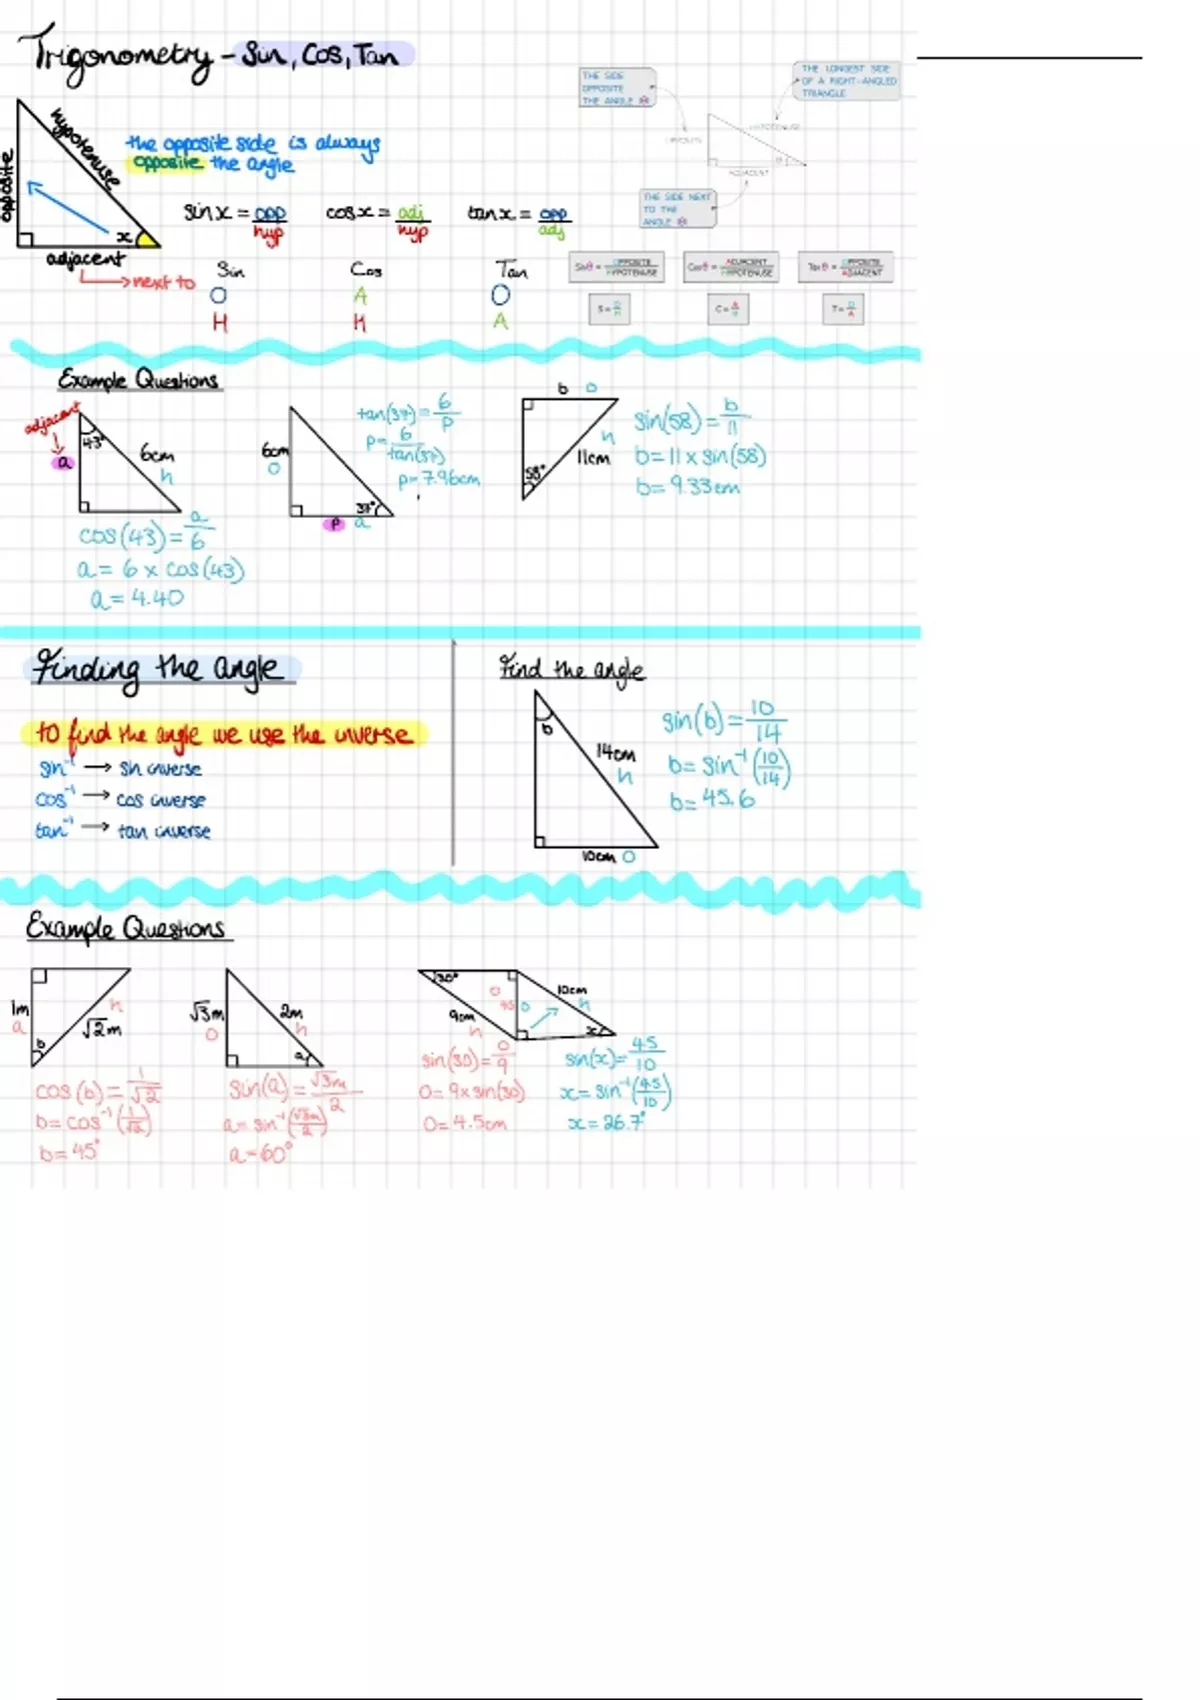 Trigonometry - Sin, Cos, Tan
THE SIDE
OPPOSITE
THE ANGLE θ
THE LONGEST SIDE
OF A RIGHT-ANGLED
TRIANGLE
hypotenuse
opposite
the opposite side is always
opposite the angle
HYPOTENUSE
OPPOSITE
θ
ADJACENT
THE SIDE NEXT
TO THE
ANGLE θ
x
adjacent
→ next to
sin x = opp/hyp
cos x = adj/hyp
tan x = opp/adj
Sin
O
H
Cos
A
H
Tan
O
A
Sinθ = OPPOSITE/HYPOTENUSE
Cosθ = ADJACENT/HYPOTENUSE
Tanθ = OPPOSITE/ADJACENT
S = O/H
C = A/H
T = O/A
Example Questions
adjacent
a
43°
6cm
h
cos(43) = a/6
a = 6 x cos(43)
a = 4.40
6cm
O
37°
p a
tan(37) = 6/p
p = 6/tan(37)
p = 7.96cm
b O
h
11cm
58°
sin(58) = b/11
b = 11 x sin(58)
b = 9.33cm
Finding the angle
to find the angle we use the inverse
sin⁻¹ → sin inverse
cos⁻¹ → cos inverse
tan⁻¹ → tan inverse
Find the angle
b
14cm
h
10cm O
sin(b) = 10/14
b = sin⁻¹(10/14)
b = 45.6
Example Questions
1m
a
h
√2m
b
cos(b) = 1/√2
b = cos⁻¹(1/√2)
b = 45°
√3m
O
2m
h
a
sin(a) = √3m/2
a = sin⁻¹(√3m/2)
a = 60°
30°
O
9cm
h
4.5
O
10cm
h
x
sin(30) = O/9
O = 9 x sin(30)
O = 4.5cm
sin(x) = 4.5/10
x = sin⁻¹(4.5/10)
x = 26.7°